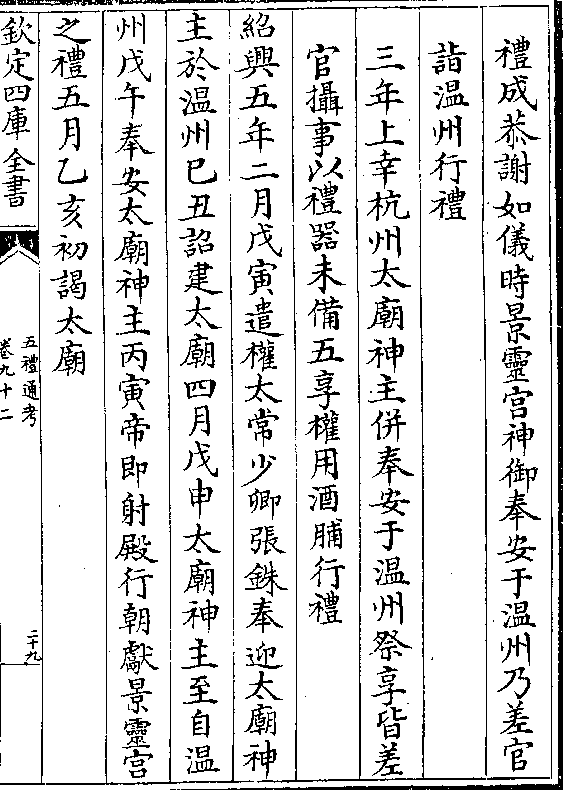 禮成恭謝如儀時景靈宮神御奉安于温州乃差官
詣温州行禮
三年上幸杭州太廟神主併奉安于温州祭享皆差
官攝事以禮器未備五享權用酒脯行禮
紹興五年二月戊寅遣權太常少卿張銖奉迎太廟神
主於温州己丑詔建太廟四月戊申太廟神主至自温
州戊午奉安太廟神主丙寅帝即射殿行朝獻景靈宮
之禮五月乙亥初謁太廟
欽定四庫全書
五禮通考
卷九十二
二十九